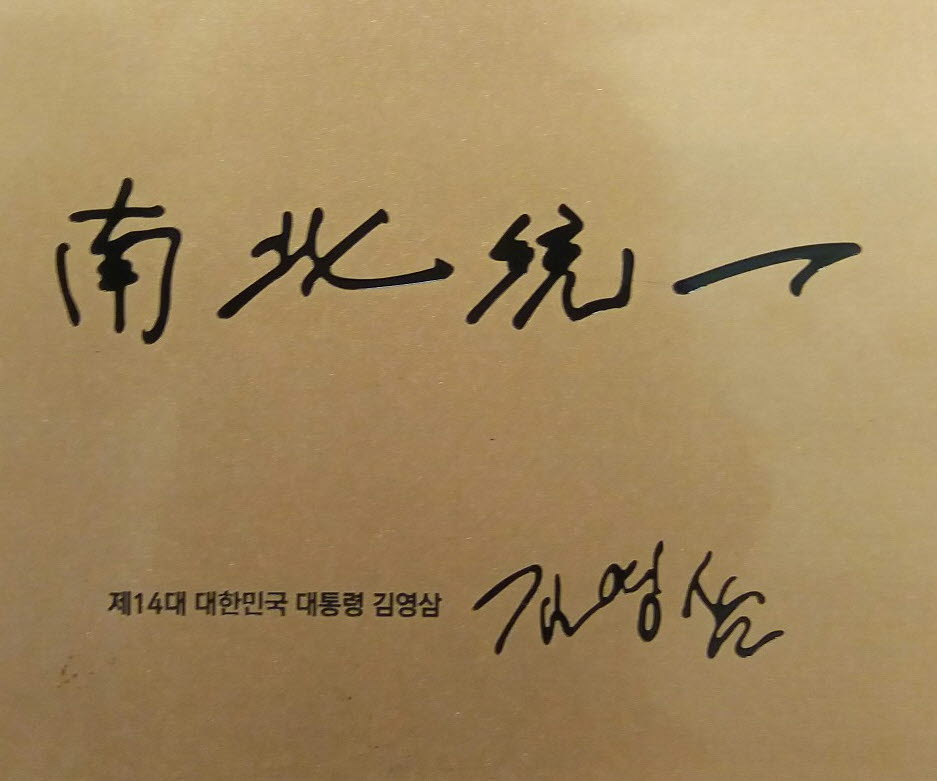 南北統一
제14대 대한민국 대통령 김영삼 김영삼